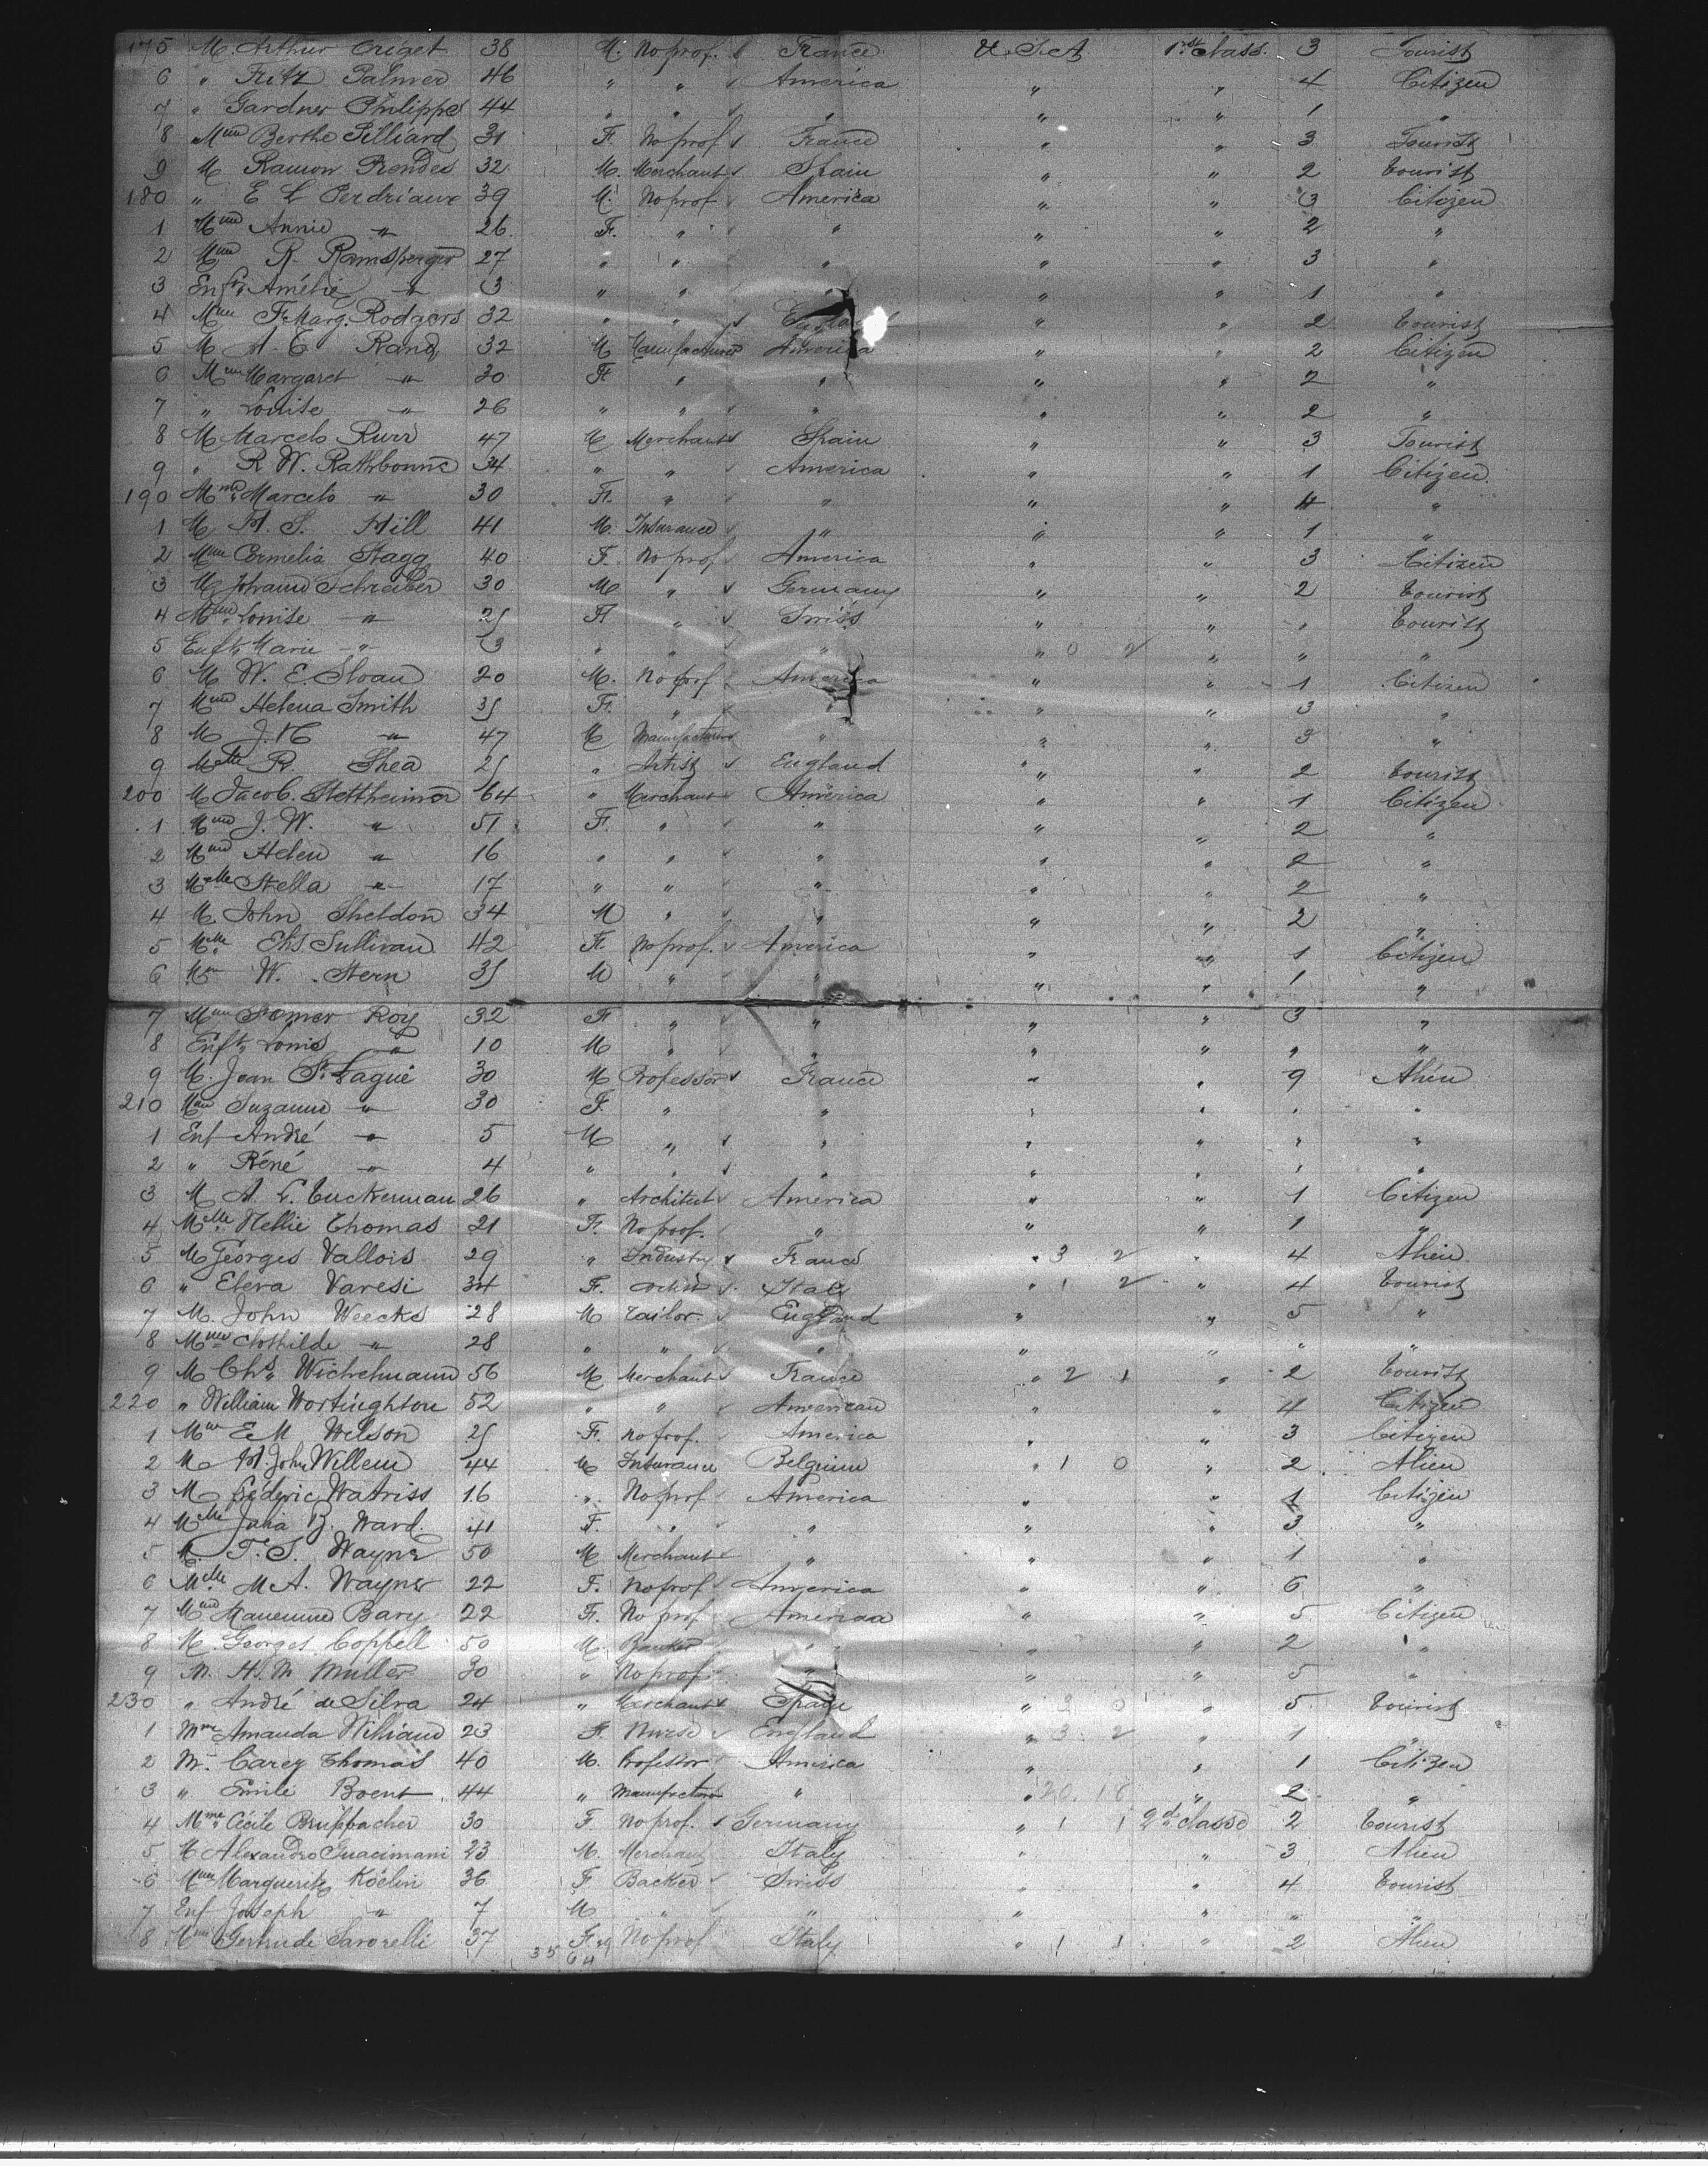 175 M. Arthur Origet 38 M. No prof. France U.S.A 1st class. 3 Tourist
6 " Fritz Palmer 46 " " America " " 4 Citizen
7 " Gardner Philipps 44 " " " " " 1 "
8 Mme Berthe Pilliard 31 F. No prof France " " 3 Tourist
9 M Ramon Prendes 32 M. Merchant Spain " " 2 tourist
180 " E L Perdriaux 39 M. No prof America " " 3 Citizen
1 Mme Annie " 26 F. " " " " 2 "
2 Mme R. Ramsperger 27 " " " " " 3 "
3 Enft Amélie " 3 " " " " " 1 "
4 Mme F. Marg. Rodgers 32 " " " " 2 tourist
5 M A. E Rand 32 M Manufacturer America " " 2 Citizen
6 Mme Margaret " 30 F. " " " " 2 "
7 " Louise " 26 " " " " " 2 "
8 M Marcelo Rurr 47 M Merchant Spain " " 3 Tourist
9 " R W. Rathbonne 34 " " America " " 1 Citizen
190 Mme Marcelo " 30 F. " " " " 4 "
1 M H. S. Hill 41 M. Insurance " " " 1 "
2 Mme Cornelia Stagg 40 F. No prof America " " 3 Citizen
3 M Johann Schreiber 30 M " Germany " " 2 tourist
4 Mme Louise " 25 F. " Swiss " " " tourist
5 Enft Marie " 3 " " " " 0 2 " " "
6 M W. E. Sloan 20 M. No prof America " " 1 Citizen
7 Mme Helena Smith 35 F. " " " 3 "
8 M J. H " 47 M Manufacturer " " " 3 "
9 Melle R. Shea 25 " Artist England " " 2 tourist
200 M Jacob. Stettheimer 64 " Merchant America " " 1 Citizen
1 Mme J. W. " 51 F. " " " " 2 "
2 Mme Helen " 16 " " " " " 2 "
3 Melle Stella " 17 " " " " " 2 "
4 M. John Sheldon 34 M " " " " 2 "
5 Melle Ehs Sullivan 42 F. No prof. America " " 1 Citizen
6 W. Stern 35 M " " " " 1 "
7 Mme Romer Roy 32 F. " " " " 3 "
8 Enft Louis " 10 M " " " " " "
9 M. Jean St Lagué 30 M Professor France " " 9 Alien
210 Mme Suzanne " 30 F. " " " " " "
1 Enf André " 5 M " " " " " "
2 " Réné " 4 " " " " " " "
3 M A. L. Tuckerman 26 " Architect America " " 1 Citizen
4 Melle Nellie Thomas 21 F. No prof. " " " 1 "
5 M Georges Vallois 29 " Industry France " 3 2 " 4 Alien
6 " Elena Varesi 34 F. Artist Italy " 1 2 " 4 tourist
7 M. John Weecks 28 M tailor England " " 5 "
8 Mme Clothilde " 28 " " " " " " "
9 M Chs Wichelmann 56 M Merchant France " 2 1 " 2 tourist
220 " William Wortinghton 52 " " American " " 4 Citizen
1 Mme E M Wilson 25 F. No prof. America " " 3 Citizen
2 M H. John Willem 44 M Insurance Belgium " 1 0 " 2 Alien
3 M Fréderic Watriss 16 " No prof America " " 1 Citizen
4 Melle Julia B. Ward. 41 F. " " " " 3 "
5 M. T. S. Wayne 50 M Merchant " " " 1 "
6 Melle M A. Wayne 22 F. No prof America " " 6 "
7 Mme Bary 22 F. No prof America " " 5 Citizen
8 M. Georges Coppell 50 M. Banker " " " 2 "
9 M. H. M Muller 30 " No prof " " " 5 "
230 " André de Silva 24 " Merchant Spain " " 5 tourist
1 Mme Amanda William 23 F. Nurse England " 3 2 " 1 "
2 M. Carey Thomas 40 M. Professor America " " 1 Citizen
3 " Emile Boent 44 " Manufacturer " " 20 18 " 2 "
4 Mme Cécile Bruppacher 30 F. No prof. Germany " 1 1 2d classe 2 tourist
5 M Alexandro Guacimani 23 M. Merchant Italy " " 3 Alien
6 Mme Marguerite Köelin 36 F Backer Swiss " " 4 tourist
7 Enf Joseph " 7 M " " " " " "
8 Mme Gertrude Savorelli 37 F. No prof Italy " 1 1 " 2 Alien
35 64